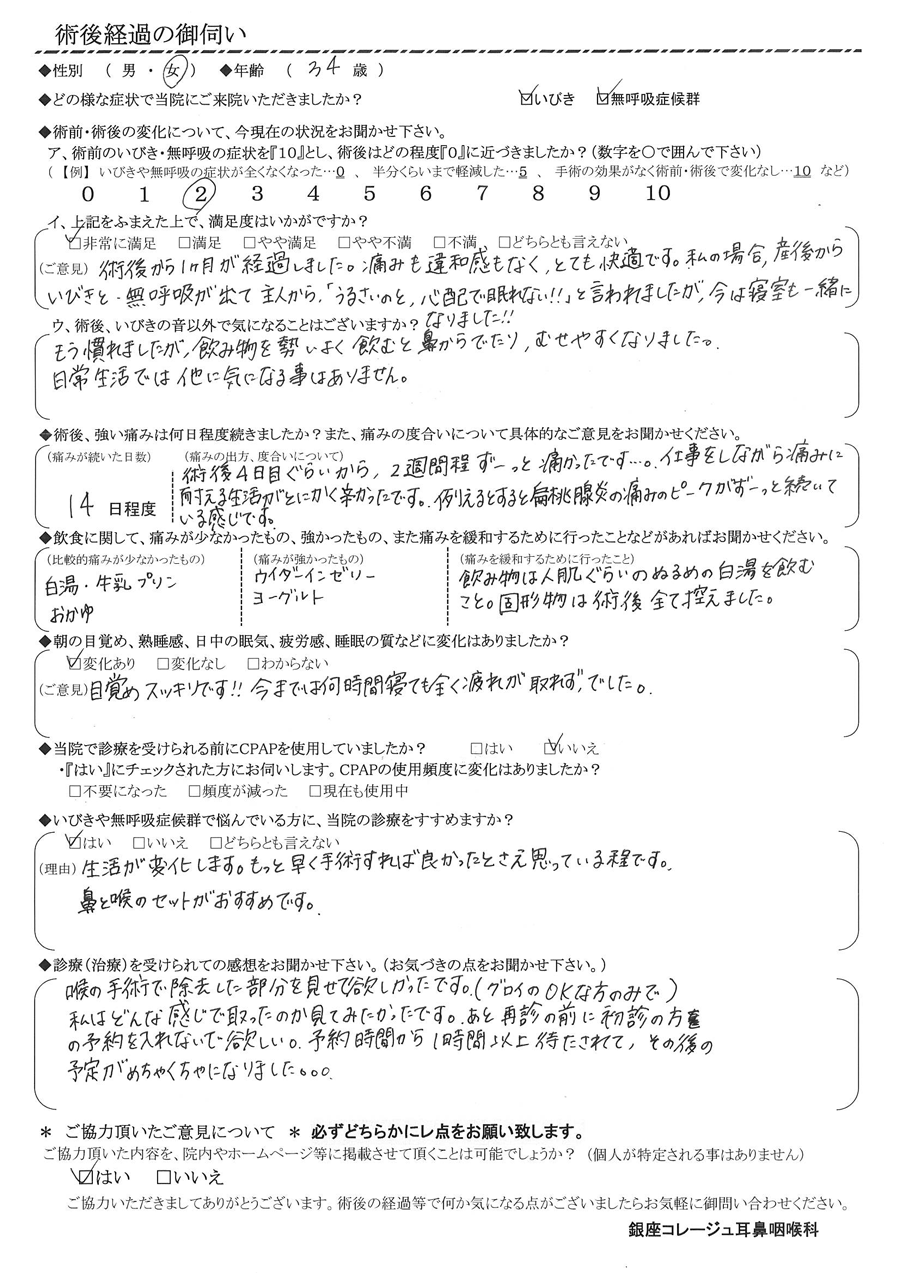 術後経過の御伺い
◆性別 （ 男 ・ 女 ） ◆年齢 （ 34 歳 ）
◆どの様な症状で当院にご来院いただきましたか？ ☑いびき ☑無呼吸症候群
◆術前・術後の変化について、今現在の状況をお聞かせ下さい。
ア、術前のいびき・無呼吸の症状を『10』とし、術後はどの程度『0』に近づきましたか？（数字を〇で囲んで下さい）
（【例】 いびきや無呼吸の症状が全くなくなった…0 、 半分くらいまで軽減した…5 、 手術の効果がなく術前・術後で変化なし…10 など）
0 1 2 3 4 5 6 7 8 9 10
イ、上記をふまえた上で、満足度はいかがですか？
☑非常に満足 □満足 □やや満足 □やや不満 □不満 □どちらとも言えない
（ご意見） 術後から1ヶ月が経過しました。痛みも違和感もなく、とても快適です。私の場合、産後から
いびきと・無呼吸が出て主人から、「うるさいのと、心配で眠れない!!」と言われましたが、今は寝室も一緒に
なりました!!
ウ、術後、いびきの音以外で気になることはございますか？
もう慣れましたが、飲み物を勢いよく飲むと鼻からでたり、むせやすくなりました。
日常生活では他に気になる事はありません。
◆術後、強い痛みは何日程度続きましたか？また、痛みの度合いについて具体的なご意見をお聞かせください。
（痛みが続いた日数） （痛みの出方、度合いについて）
14 日程度
術後4日目ぐらいから、2週間程ずーっと痛かったです…。仕事をしながら痛みに
耐える生活がとにかく辛かったです。例えるとすると扁桃腺炎の痛みのピークがずーっと続いて
いる感じです。
◆飲食に関して、痛みが少なかったもの、強かったもの、また痛みを緩和するために行ったことなどがあればお聞かせください。
（比較的痛みが少なかったもの） （痛みが強かったもの） （痛みを緩和するために行ったこと）
白湯・牛乳プリン
おかゆ
ウイダーインゼリー
ヨーグルト
飲み物は人肌ぐらいのぬるめの白湯を飲む
こと。固形物は術後全て控えました。
◆朝の目覚め、熟睡感、日中の眠気、疲労感、睡眠の質などに変化はありましたか？
☑変化あり □変化なし □わからない
（ご意見） 目覚めスッキリです!! 今までは何時間寝ても全く疲れが取れず、でした。
◆当院で診療を受けられる前にCPAPを使用していましたか？ □はい ☑いいえ
・『はい』にチェックされた方にお伺いします。CPAPの使用頻度に変化はありましたか？
□不要になった □頻度が減った □現在も使用中
◆いびきや無呼吸症候群で悩んでいる方に、当院の診療をすすめますか？
☑はい □いいえ □どちらとも言えない
（理由） 生活が変化します。もっと早く手術すれば良かったとさえ思っている程です。
鼻と喉のセットがおすすめです。
◆診療（治療）を受けられての感想をお聞かせ下さい。（お気づきの点をお聞かせ下さい。）
喉の手術で除去した部分を見せて欲しかったです。（グロイのOKな方のみで）
私はどんな感じで取ったのか見てみたかったです。あと再診の前に初診の方
の予約を入れないで欲しい。予約時間から1時間以上待たされて、その後の
予定がめちゃくちゃになりました。。。
＊ ご協力頂いたご意見について ＊ 必ずどちらかにレ点をお願い致します。
ご協力頂いた内容を、院内やホームページ等に掲載させて頂くことは可能でしょうか？ （個人が特定される事はありません）
☑はい □いいえ
ご協力いただきましてありがとうございます。術後の経過等で何か気になる点がございましたらお気軽に御問い合わせください。
銀座コレージュ耳鼻咽喉科